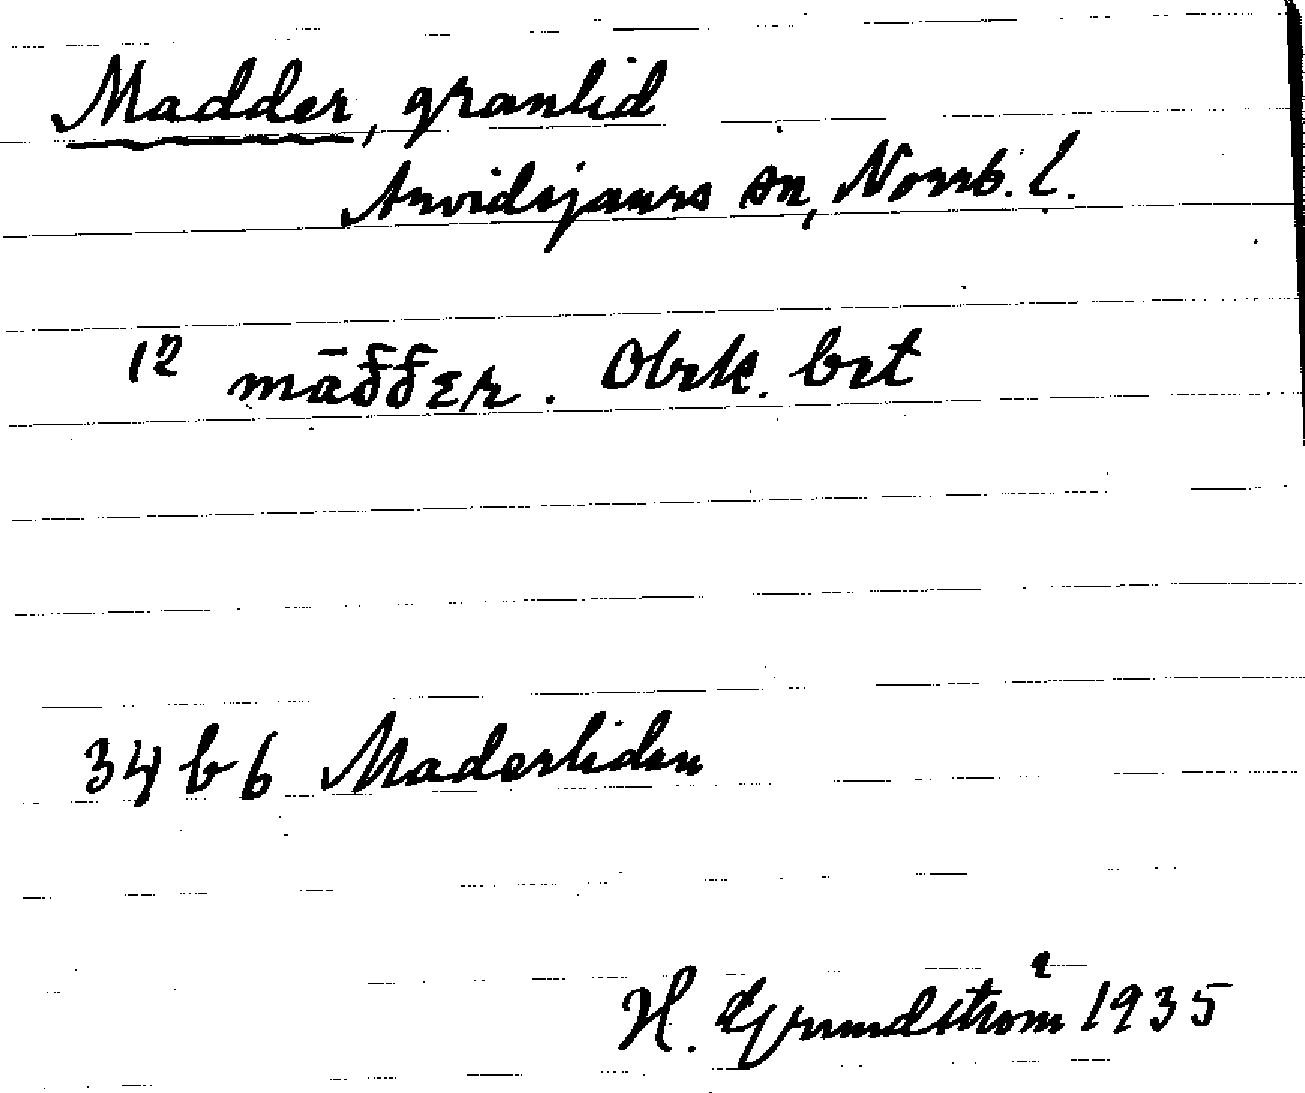 Madder, granlid
Arvidsjaurs sn, Norrb. l.
12 māđđɛr. Obek. bet
34 b 6 Maderliden
H. Grundström 1935